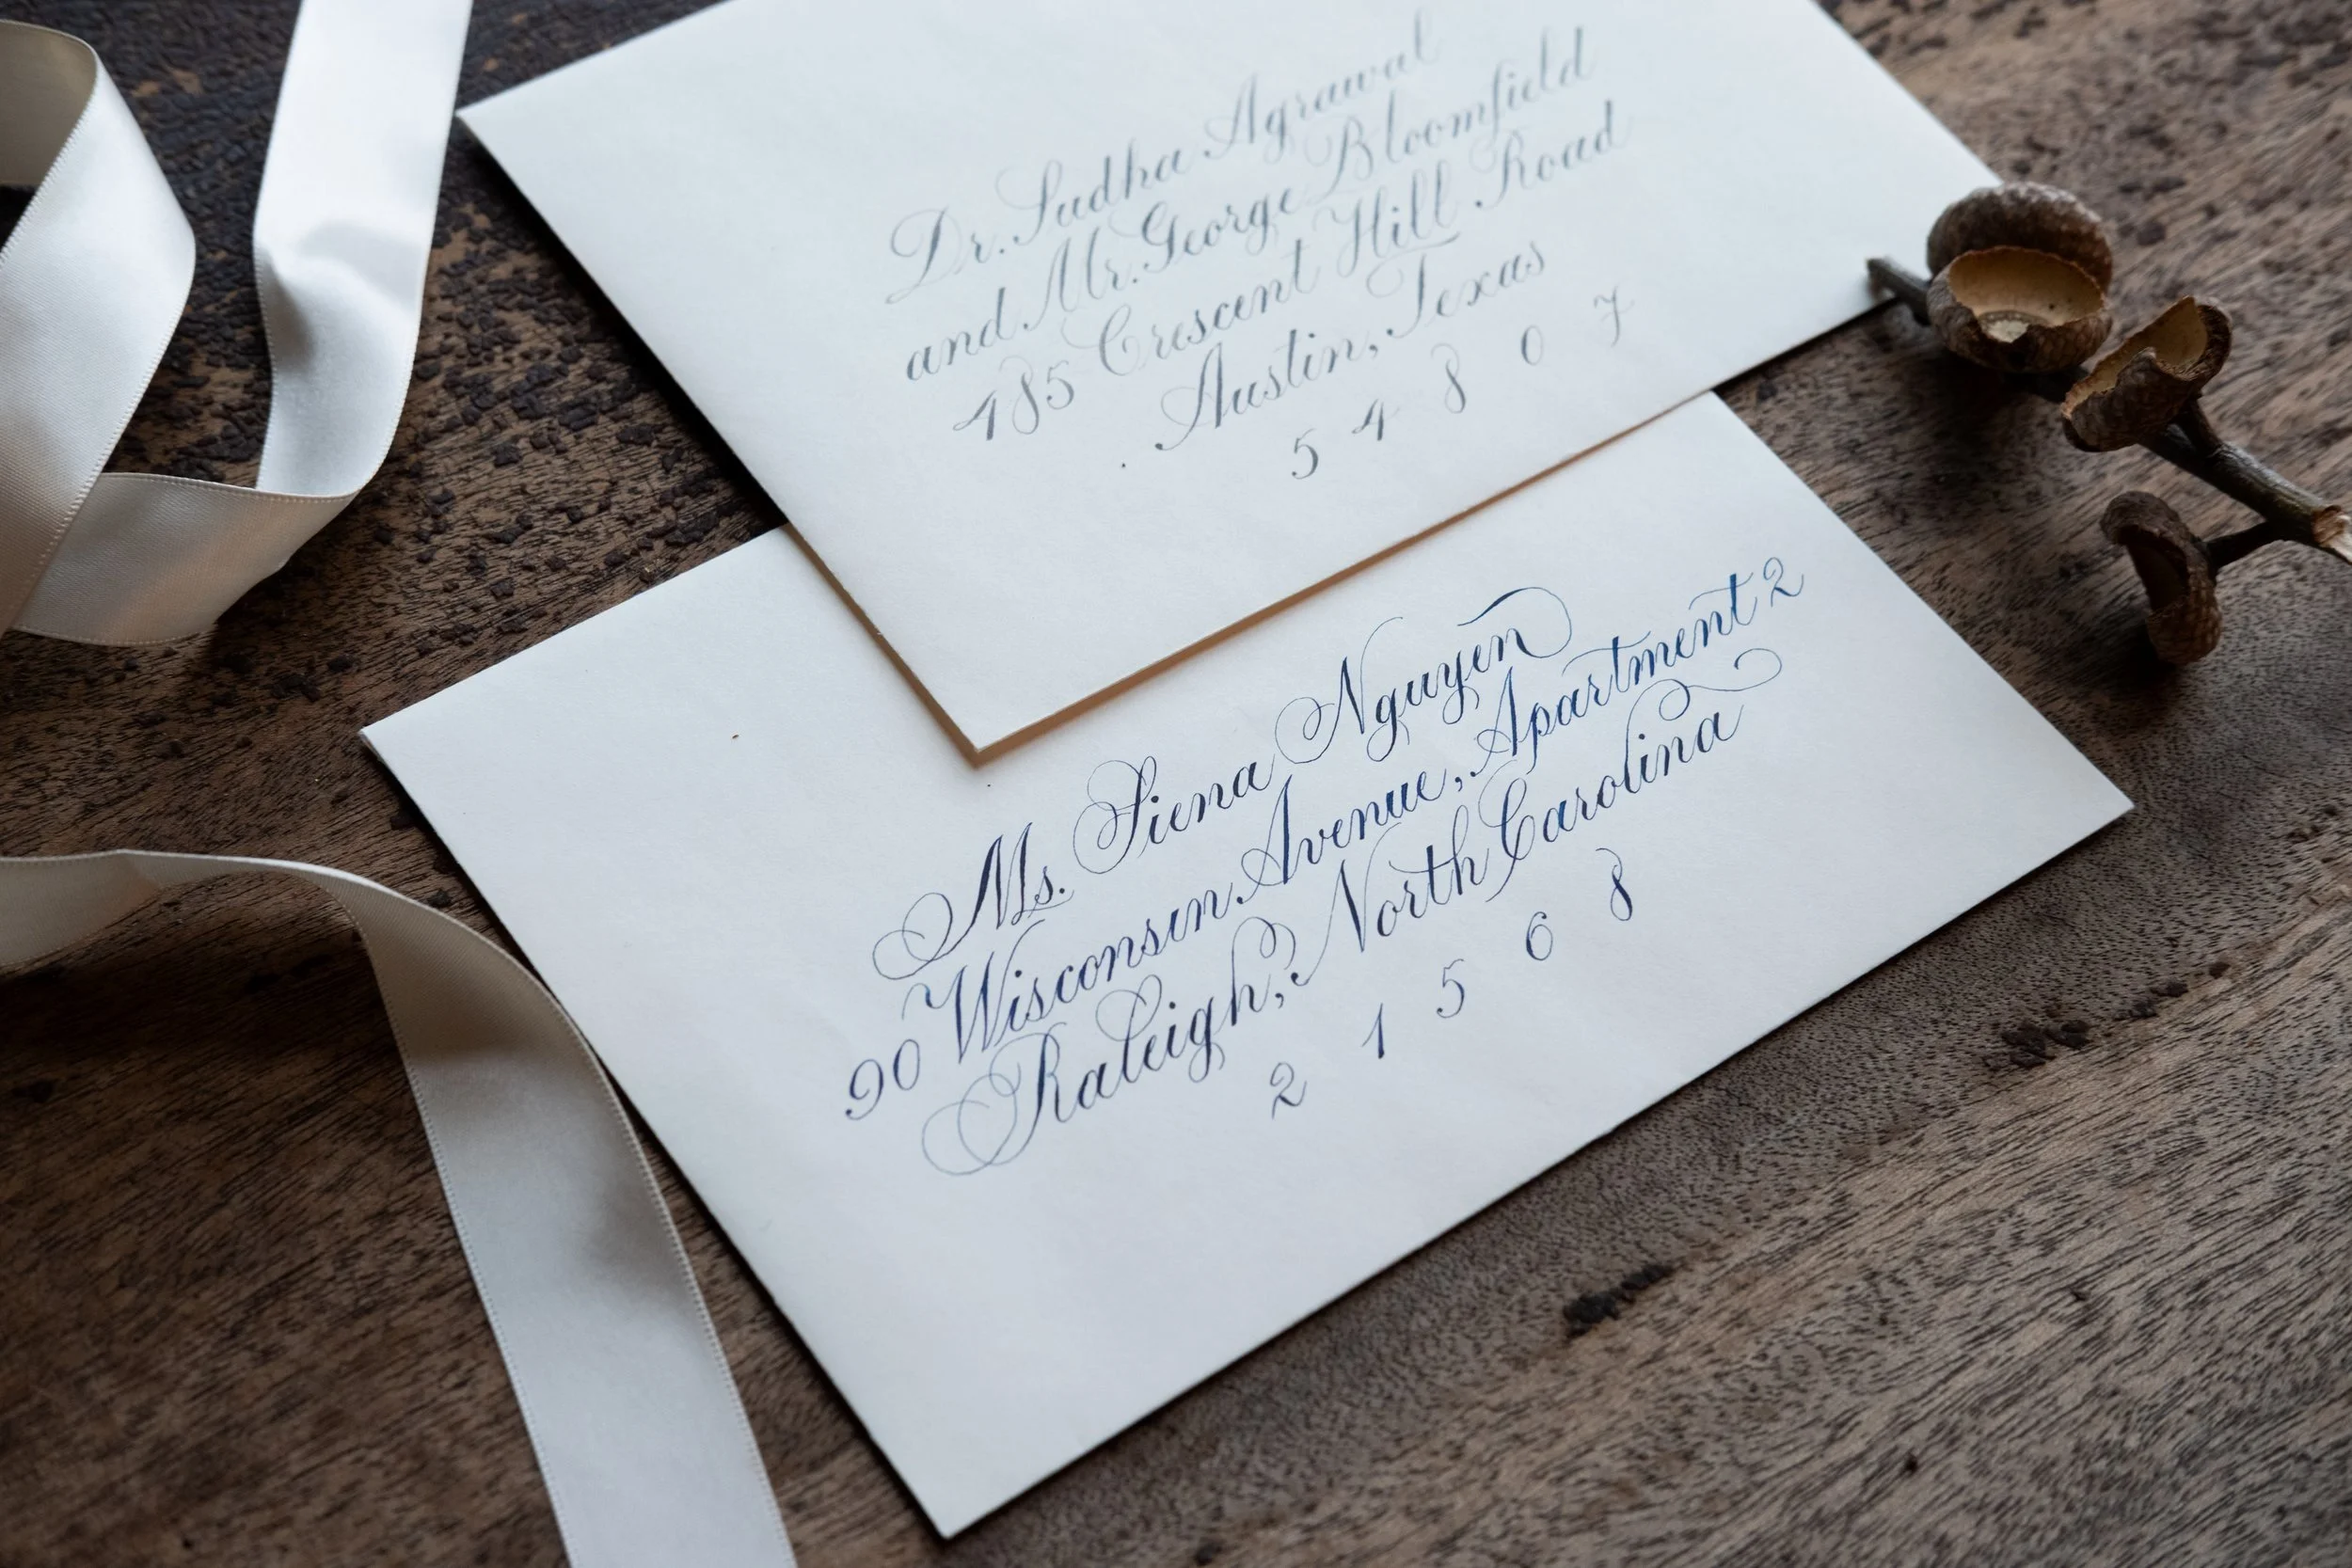 Dr. Sudha Agrawal
and Mr. George Bloomfield
485 Crescent Hill Road
Austin, Texas
5 4 8 0 7
Ms. Siena Nguyen
90 Wisconsin Avenue, Apartment 2
Raleigh, North Carolina
2 1 5 6 8